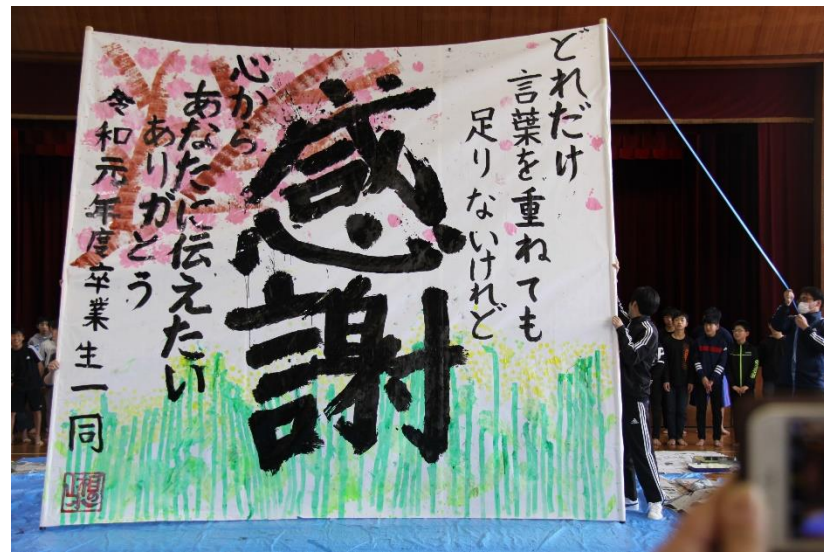 どれだけ
言葉を重ねても
足りないけれど
感謝
心から
あなたに伝えたい
ありがとう
令和元年度卒業生一同